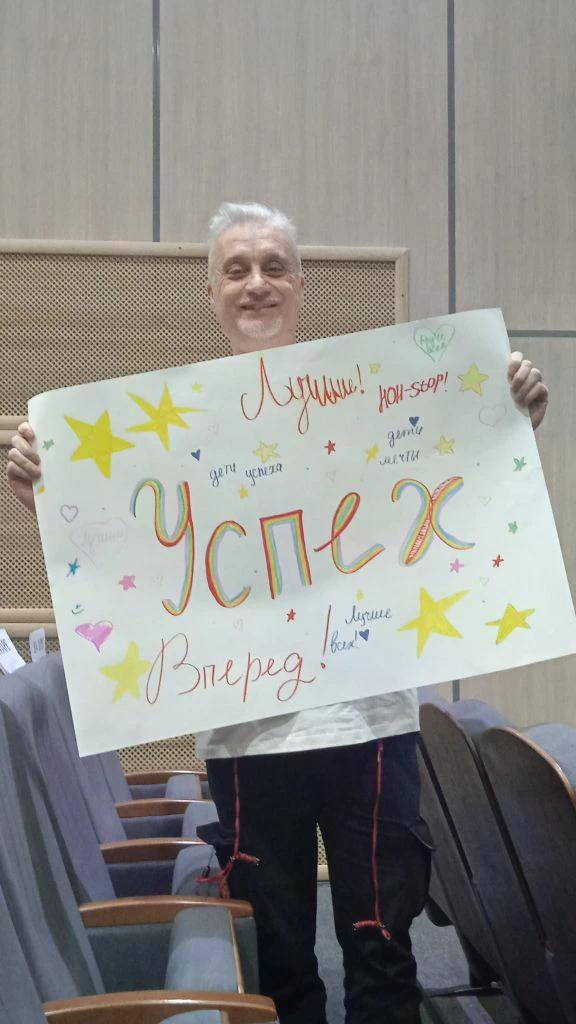 Лучшие!
НОН-STOP!
дети успеха
дети
мечты
Успех
Лучшие
Лучше
всех!
Вперед!